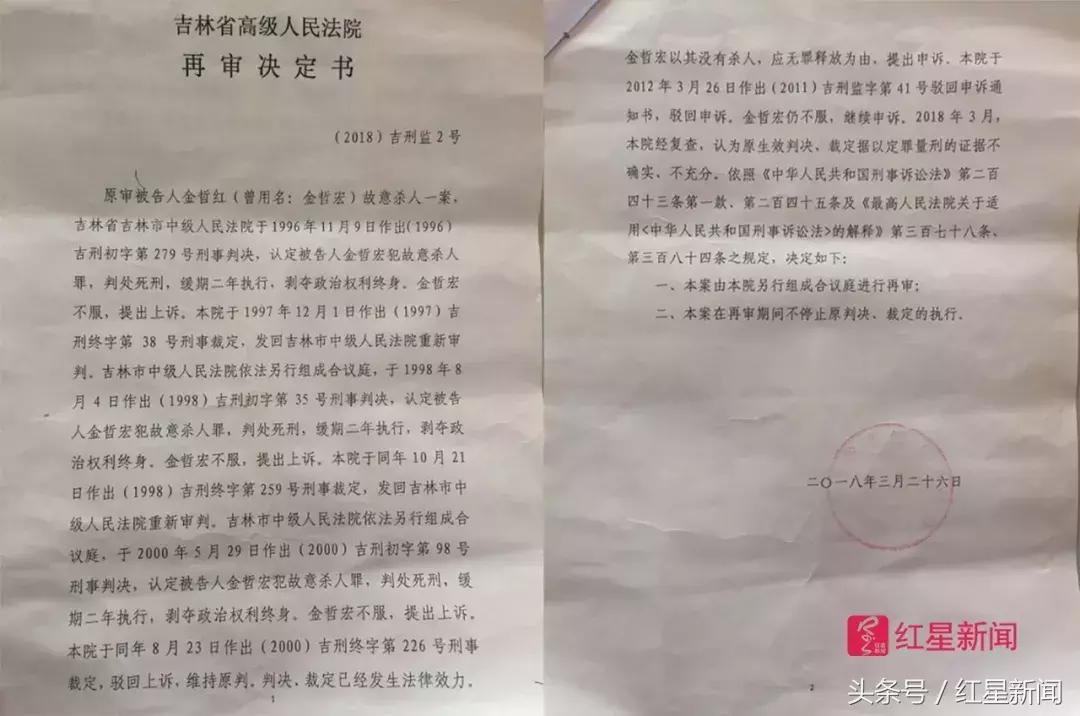 吉林省高级人民法院
再审决定书
（2018）吉刑监2号
原审被告人金哲红（曾用名：金哲宏）故意杀人一案，
吉林省吉林市中级人民法院于1996年11月9日作出(1996)
吉刑初字第279号刑事判决，认定被告人金哲宏犯故意杀人
罪，判处死刑，缓期二年执行，剥夺政治权利终身。金哲宏
不服，提出上诉。本院于1997年12月1日作出（1997）吉
刑终字第 38 号刑事裁定，发回吉林市中级人民法院重新审
判。吉林市中级人民法院依法另行组成合议庭，于1998年8
月4日作出（1998）吉刑初字第35号刑事判决，认定被告
人金哲宏犯故意杀人罪，判处死刑，缓期二年执行，剥夺政
治权利终身。金哲宏不服，提出上诉。本院于同年10月21
日作出（1998）吉刑终字第259号刑事裁定，发回吉林市中
级人民法院重新审判。吉林市中级人民法院依法另行组成合
议庭，于2000年5月29日作出（2000）吉刑初字第98号
刑事判决，认定被告人金哲宏犯故意杀人罪，判处死刑，缓
期二年执行，剥夺政治权利终身。金哲宏不服，提出上诉。
本院于同年8月23日作出（2000）吉刑终字第226号刑事
裁定，驳回上诉，维持原判。判决、裁定已经发生法律效力。
1
金哲宏以其没有杀人，应无罪释放为由，提出申诉。本院于
2012年3月26日作出（2011）吉刑监字第41号驳回申诉通
知书，驳回申诉。金哲宏仍不服，继续申诉。2018年3月，
本院经复查，认为原生效判决、裁定据以定罪量刑的证据不
确实、不充分。依照《中华人民共和国刑事诉讼法》第二百
四十三条第一款、第二百四十五条及《最高人民法院关于适
用<中华人民共和国刑事诉讼法>的解释》第三百七十八条、
第三百八十四条之规定，决定如下：
一、本案由本院另行组成合议庭进行再审；
二、本案在再审期间不停止原判决、裁定的执行。
二〇一八年三月二十六日
2
红星新闻
头条号 / 红星新闻